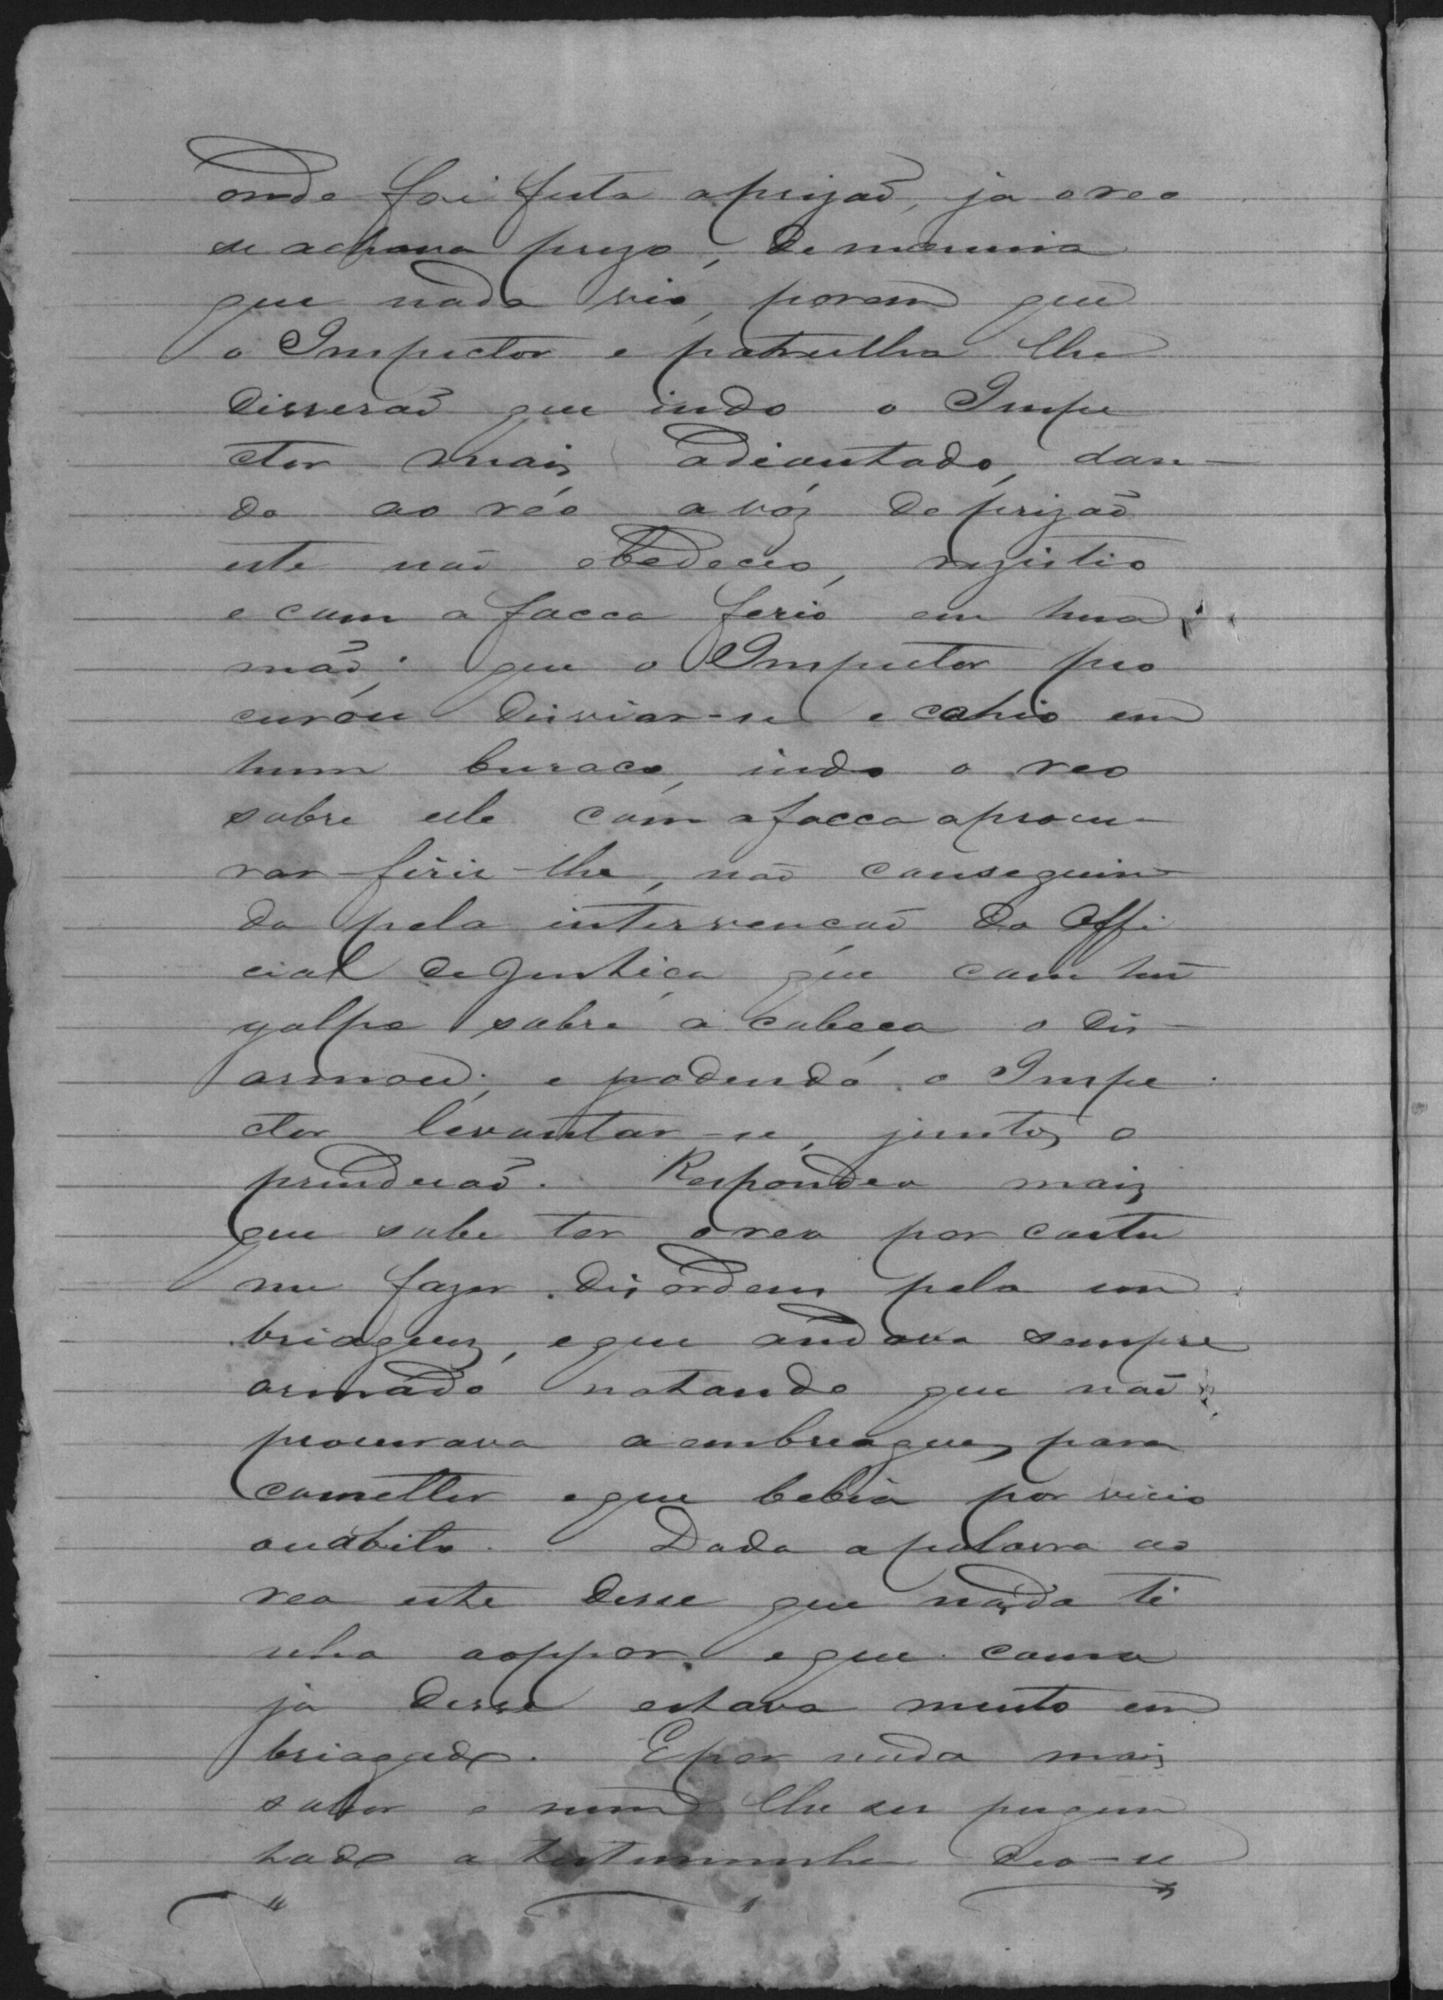 onde foi feita a prizão, ja o reo
se achava prezo, de maneira
que nada vio, porem que
o Inspector e patrulha lhe
disserão que indo o Inspe
ctor mais adiantado, dan-
do ao réo a vóz de prizão
este não obedeceo, rezistio
e com a facca ferio em hua
mão; que o Inspector pro
curou desviar-se e cahio em
hum buraco, indo o reo
sobre elle com a facca a procu-
rar ferir-lhe, não conseguin-
do pela intervenção do Offi
cial de Justiça que com hũ
golpe sobre a cabeça o des-
armou; e podendo o Inspe
ctor levantar-se, juntos o
prenderão. Respondeo mais
que sabe ter o reo por costu
me fazer disordem pela em
briaguez, e que andava sempre
armado notando que não
procurava a embriaguez para
cometter e que bebia por vicio
ou abito. Dada a palavra ao
reo este disse que nada ti
nha a oppor, e que como
já disse estava muito em
briagado. E por nada mais
saber e nem lhe ser pergun
tado a testemunha deo-se